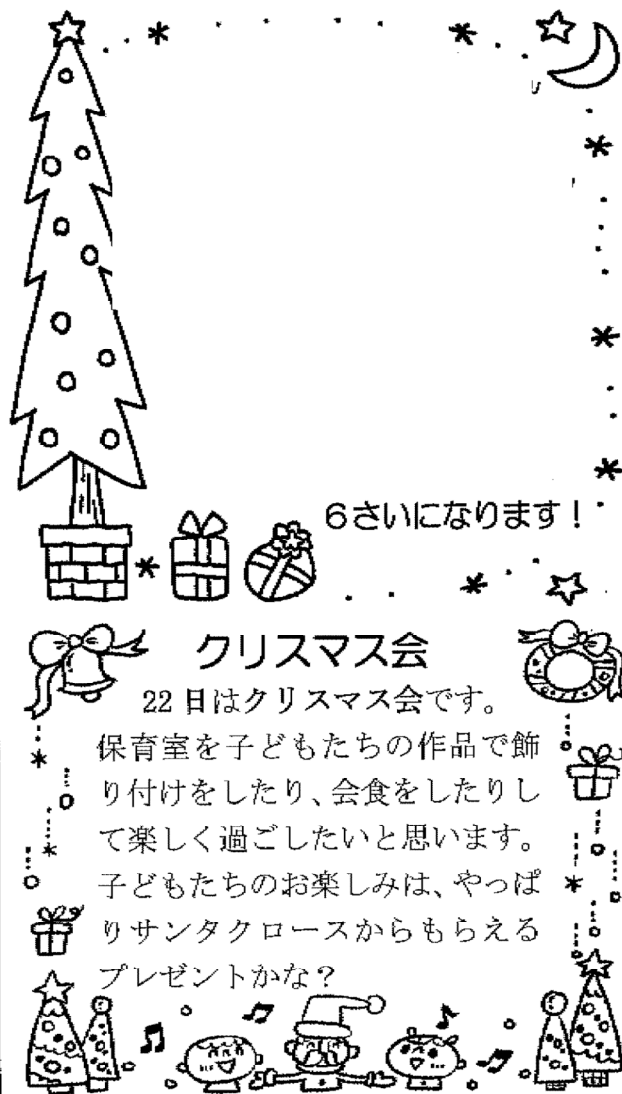 6さいになります！
クリスマス会
22日はクリスマス会です。
保育室を子どもたちの作品で飾
り付けをしたり、会食をしたりし
て楽しく過ごしたいと思います。
子どもたちのお楽しみは、やっぱ
りサンタクロースからもらえる
プレゼントかな？